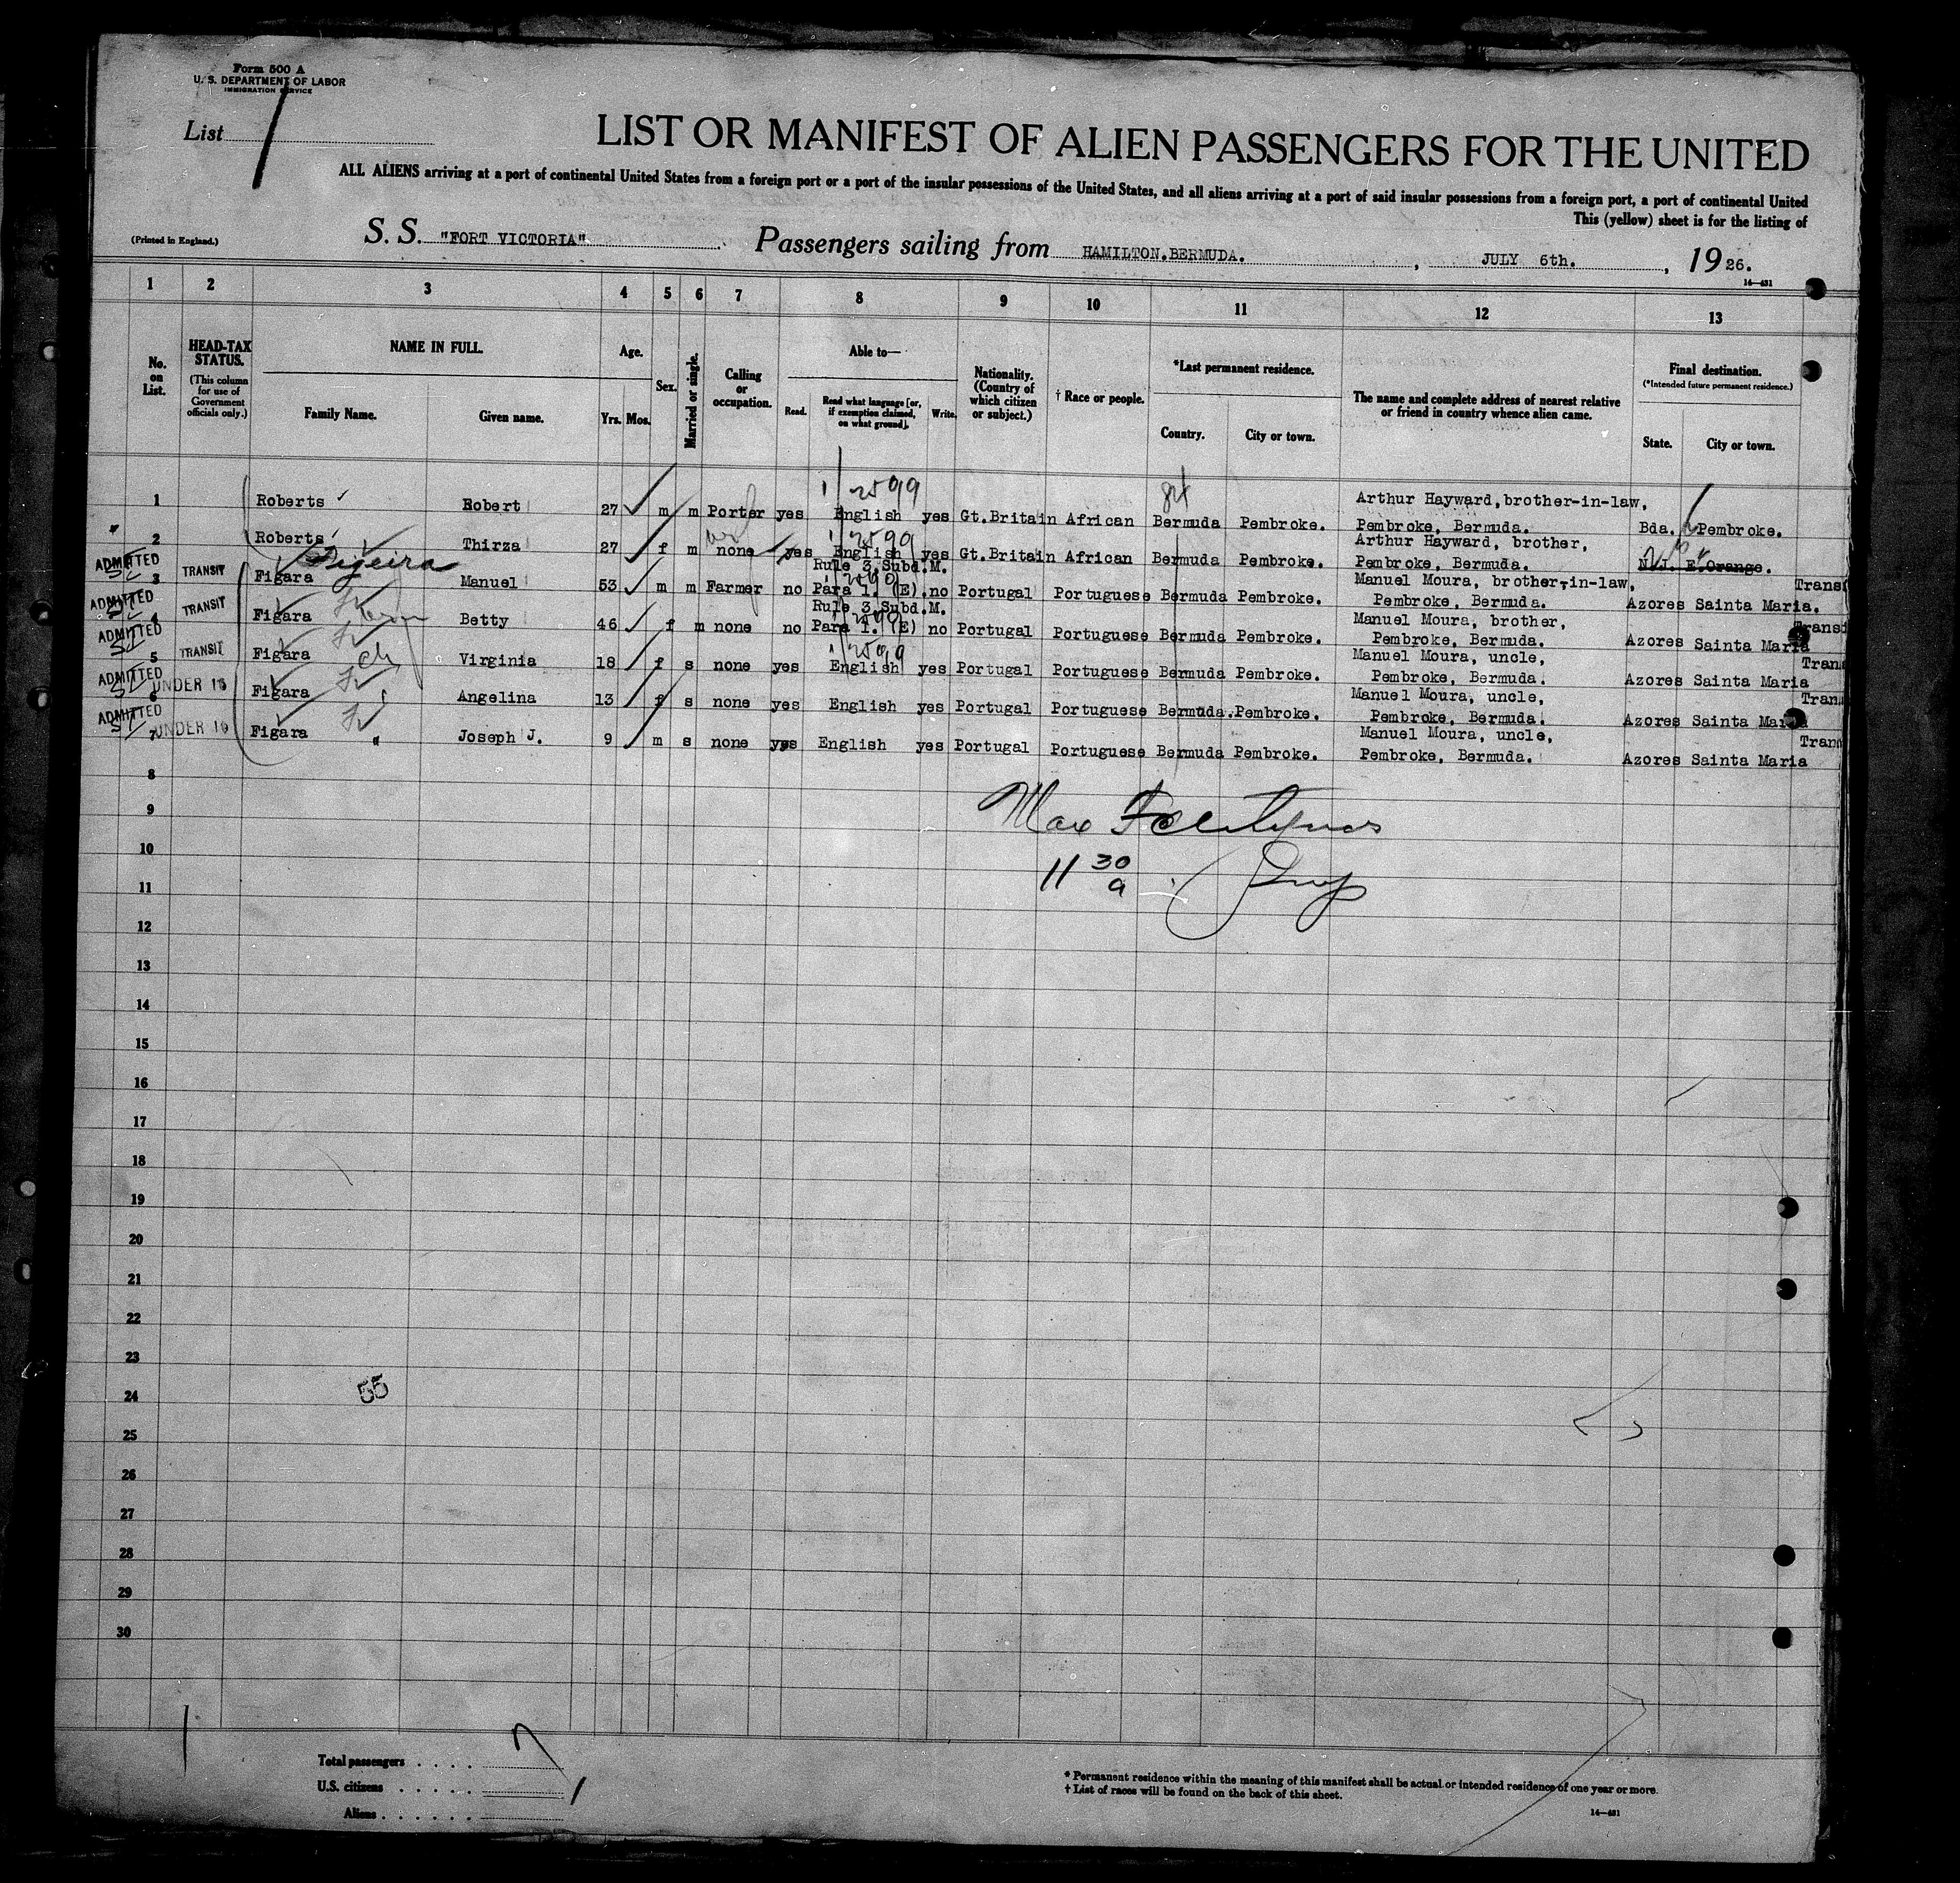 Form 500 A
U. S. DEPARTMENT OF LABOR
IMMIGRATION SERVICE
List 1
LIST OR MANIFEST OF ALIEN PASSENGERS FOR THE UNITED
ALL ALIENS arriving at a port of continental United States from a foreign port or a port of the insular possessions of the United States, and all aliens arriving at a port of said insular possessions from a foreign port, a port of continental United
This (yellow) sheet is for the listing of
(Printed in England.)
S. S. "FORT VICTORIA" Passengers sailing from HAMILTON.BERMUDA. , JULY 6th. , 1926.
14—431
1 2 3 4 5 6 7 8 9 10 11 12 13
No. on List.
HEAD-TAX STATUS. (This column for use of Government officials only.)
NAME IN FULL. Family Name. Given name.
Age. Yrs. Mos.
Sex.
Married or single.
Calling or occupation.
Able to— Read. Read what language [or, if exemption claimed, on what ground]. Write.
Nationality. (Country of which citizen or subject.)
† Race or people.
*Last permanent residence. Country. City or town.
The name and complete address of nearest relative or friend in country whence alien came.
Final destination. (*Intended future permanent residence.) State. City or town.
1 Roberts Robert 27 m m Porter yes English yes Gt.Britain African Bermuda Pembroke. Arthur Hayward,brother-in-law, Pembroke, Bermuda. Bda. Pembroke.
2 Roberts Thirza 27 f m none yes English yes Gt.Britain African Bermuda Pembroke. Arthur Hayward, brother, Pembroke, Bermuda. N.J. E.Orange.
Pigeira
ADMITTED 3 TRANSIT Figara Manuel 53 m m Farmer no Rule 3.Subd.M. Para 1. (E). no Portugal Portuguese Bermuda Pembroke. Manuel Moura, brother-in-law, Pembroke, Bermuda. Azores Sainta Maria. Trans
ADMITTED 4 TRANSIT Figara Betty 46 f m none no Rule 3.Subd.M. Para 1. (E) no Portugal Portuguese Bermuda Pembroke. Manuel Moura, brother, Pembroke, Bermuda. Azores Sainta Maria Transi
ADMITTED 5 TRANSIT Figara Virginia 18 f s none yes English yes Portugal Portuguese Bermuda Pembroke. Manuel Moura, uncle, Pembroke, Bermuda. Azores Sainta Maria Tran
ADMITTED 6 UNDER 16 Figara Angelina 13 f s none yes English yes Portugal Portuguese Bermuda.Pembroke. Manuel Moura, uncle, Pembroke, Bermuda. Azores Sainta Maria Tran
ADMITTED 7 UNDER 16 Figara Joseph J. 9 m s none yes English yes Portugal Portuguese Bermuda Pembroke. Manuel Moura, uncle, Pembroke, Bermuda. Azores Sainta Maria Tran
8
9 Max
10
11 30 a
11
12
13
14
15
16
17
18
19
20
21
22
23
24 55
25
26
27
28
29
30
Total passengers . . . . 7
U.S. citizens . . . . .
Aliens . . . . . .
* Permanent residence within the meaning of this manifest shall be actual or intended residence of one year or more.
† List of races will be found on the back of this sheet.
14—431